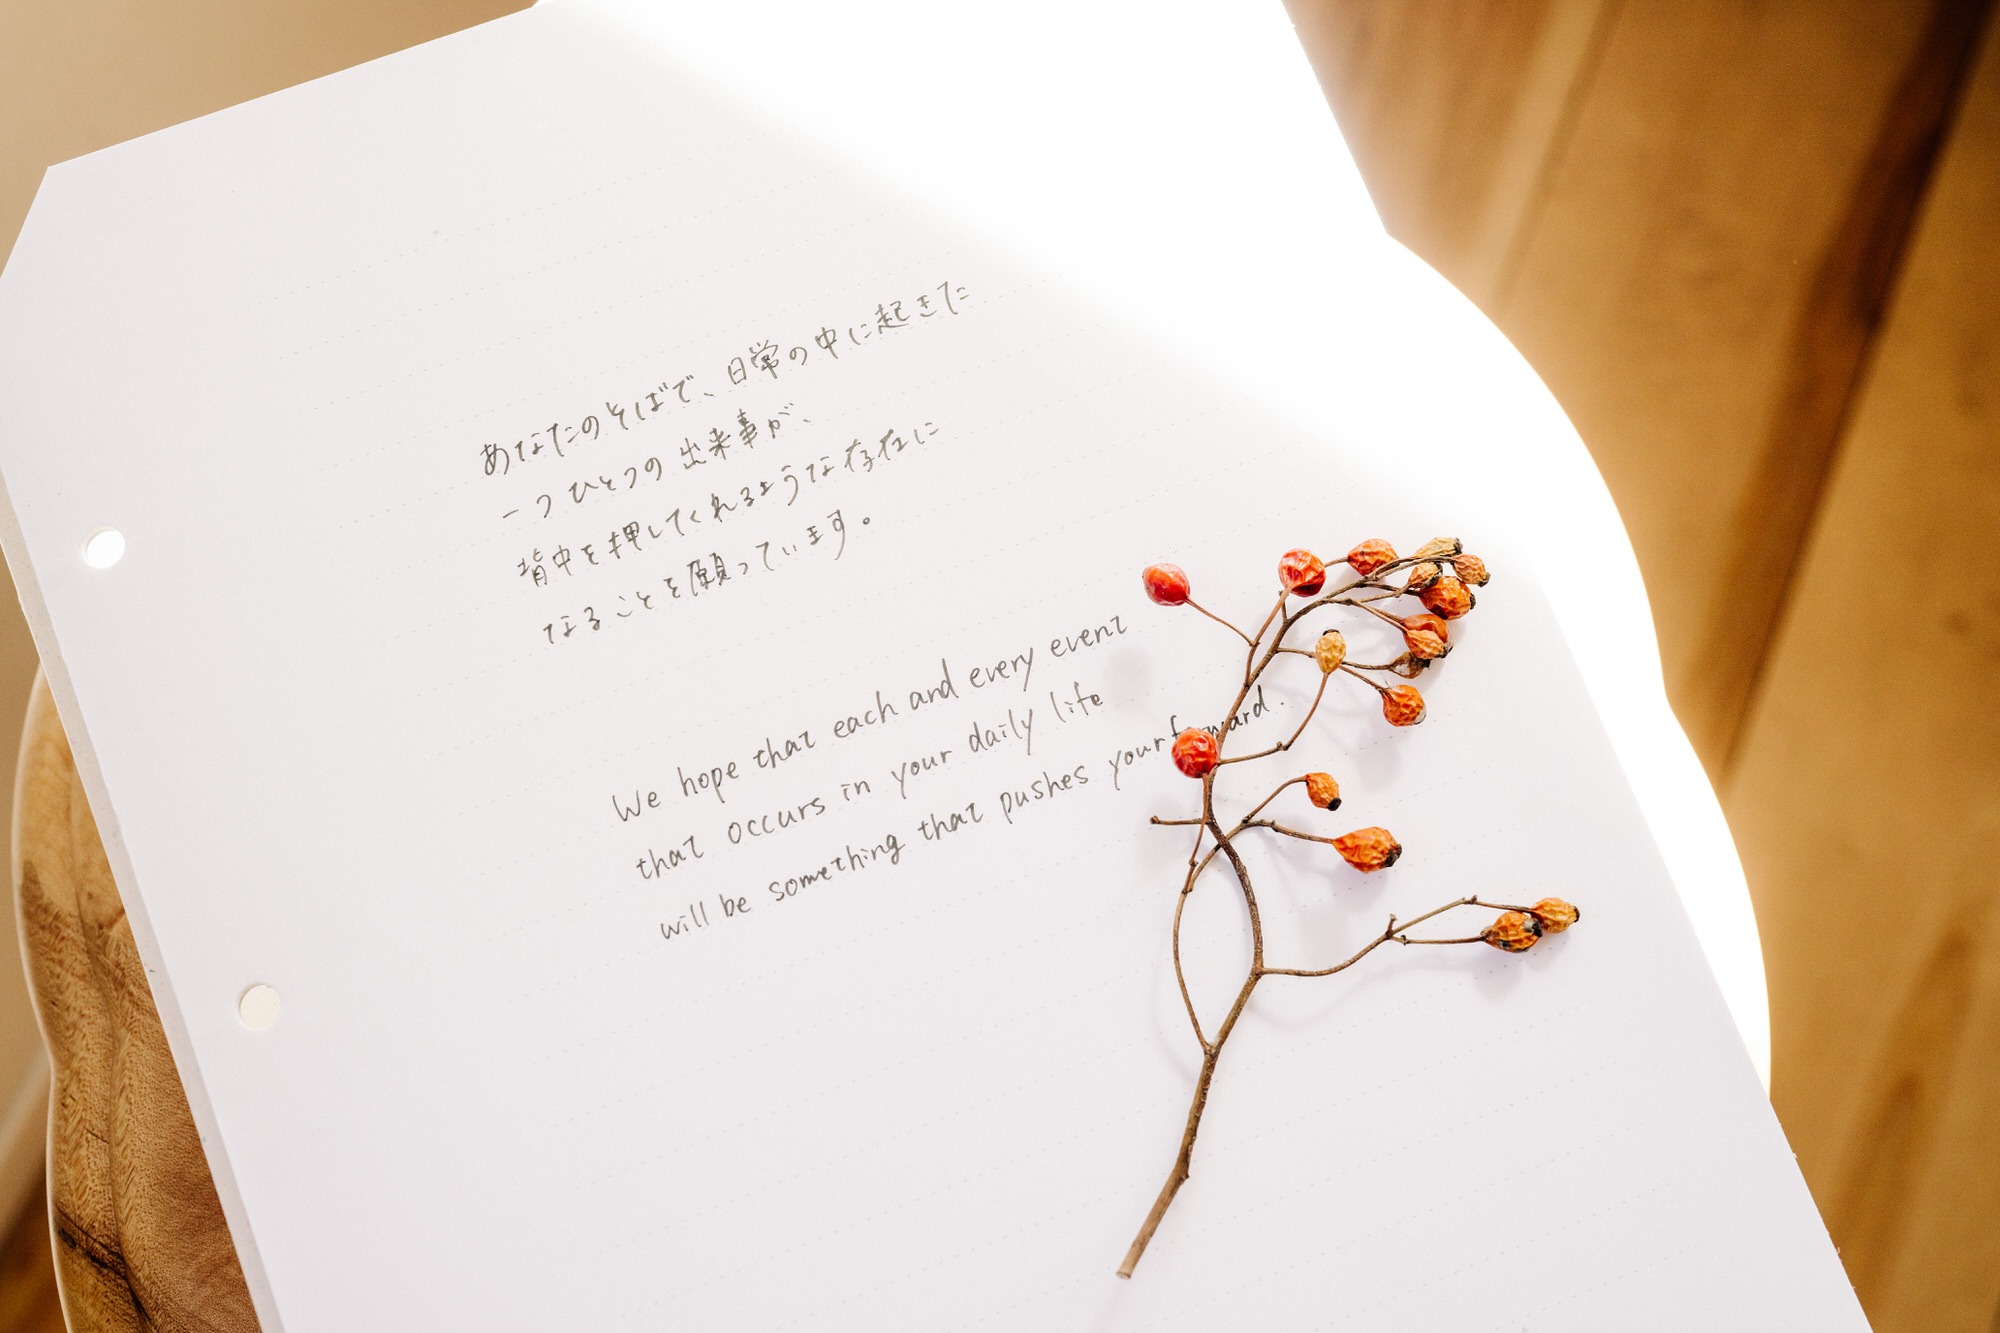 あなたのそばで、日常の中に起きた
一つひとつの出来事が、
背中を押してくれるような存在に
なることを願っています。
We hope that each and every event
that occurs in your daily life
will be something that pushes your forward.